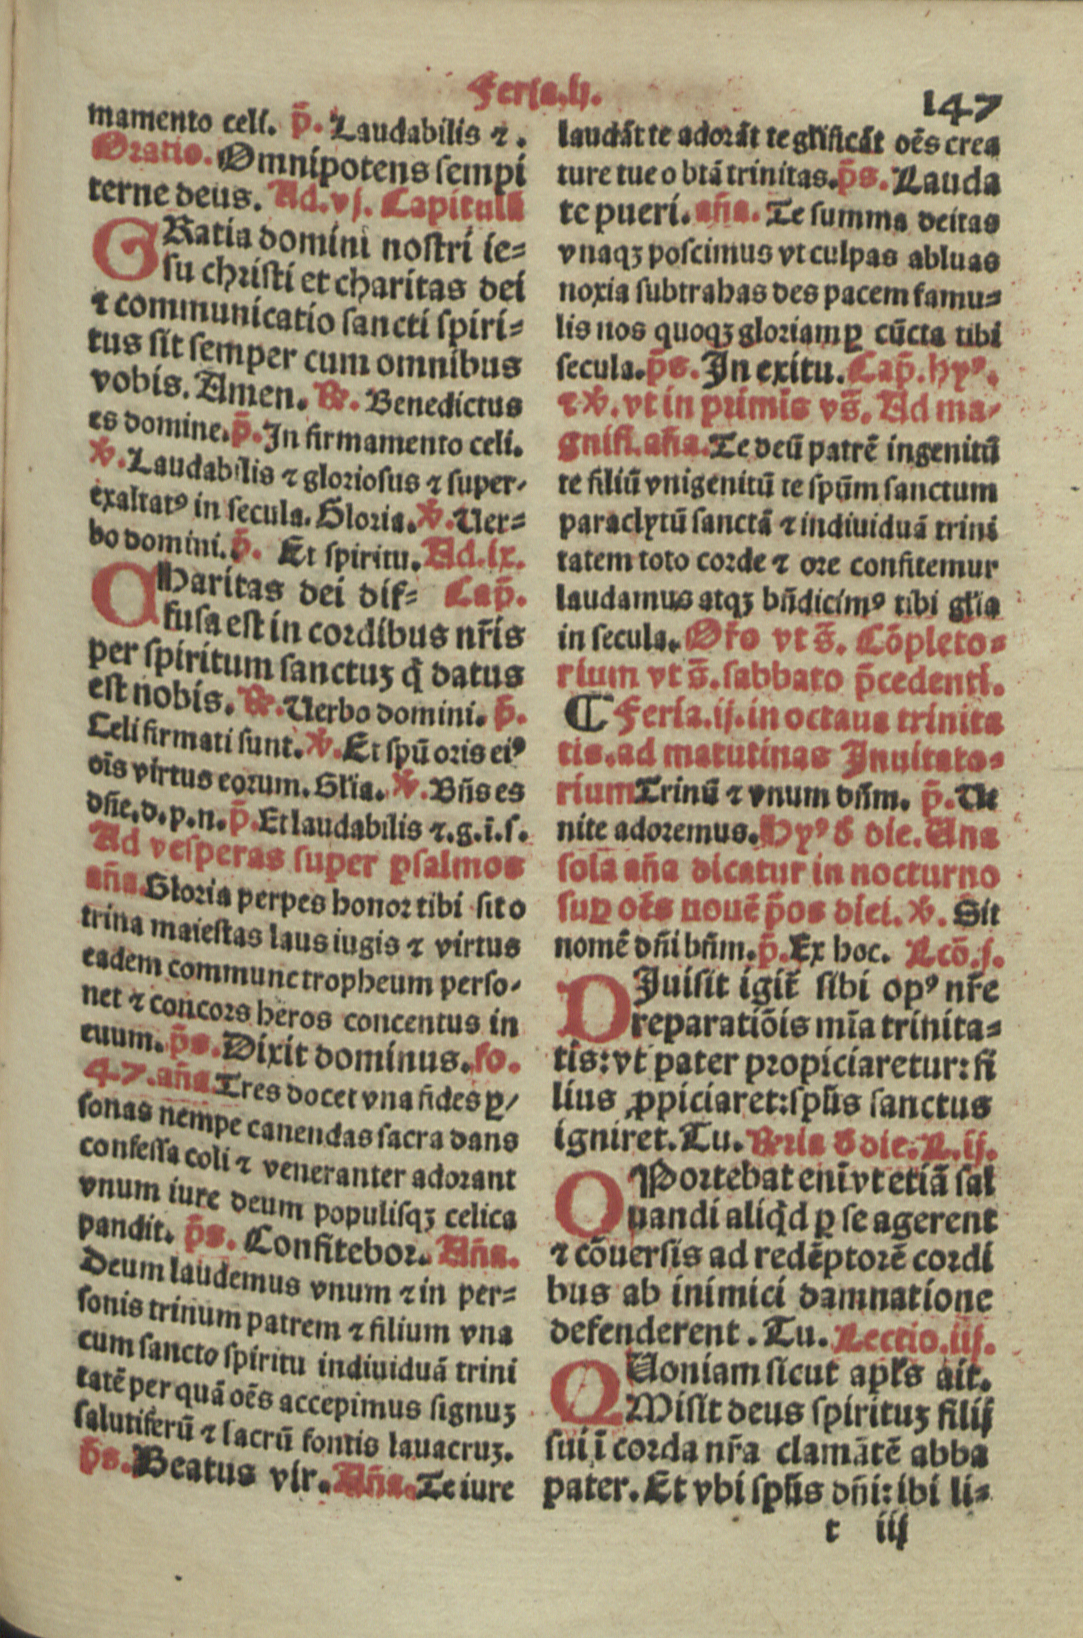 Feria.ij.
147
mamento celi. p̄. Laudabilis ⁊.
Oratio. Omnipotens sempi
terne deus. Ad.vj. Capitulū
GRatia domini nostri ie⸗
su christi et charitas dei
⁊ communicatio sancti spiri⸗
tus sit semper cum omnibus
vobis. Amen. ℟. Benedictus
es domine. p̄. In firmamento celi.
℣. Laudabilis ⁊ gloriosus ⁊ super⸗
exaltatꝰ in secula. Gloria. ℣. Uer⸗
bo domini. p̄. Et spiritu. Ad.ix.
CHaritas dei dif⸗ Cap̄.
fusa est in cordibus nr̄is
per spiritum sanctuʒ q̄ datus
est nobis. ℟. Uerbo domini. p̄.
Celi firmati sunt. ℣. Et spū oris eiꝰ
oīs virtus eorum. Glīa. ℣. Bn̄s es
dn̄e.d.p.n. p̄. Et laudabilis ⁊.g.ī.s.
Ad vesperas super psalmos
an̄a. Gloria perpes honor tibi sit o
trina maiestas laus iugis ⁊ virtus
eadem commune tropheum perso⸗
net ⁊ concors heros concentus in
euum. p̄s. Dixit dominus. fo.
47. an̄a Tres docet vna fides ꝑ⸗
sonas nempe canendas sacra dans
confessa coli ⁊ veneranter adorant
vnum iure deum populisqʒ celica
pandit. p̄s. Confitebor. An̄a.
Deum laudemus vnum ⁊ in per⸗
sonis trinum patrem ⁊ filium vna
cum sancto spiritu indiuiduā trini
tatē per quā oēs accepimus signuʒ
salutiferū ⁊ sacrū fontis lauacruʒ.
p̄s. Beatus vir. An̄a. Te iure
laudāt te adorāt te gl̄ificāt oēs crea
ture tue o btā trinitas. p̄s. Lauda
te pueri. an̄a. Te summa deitas
vnaqʒ poscimus vt culpas abluas
noxia subtrahas des pacem famu⸗
lis nos quoqʒ gloriam ꝑ cūcta tibi
secula. p̄s. In exitu. Cap̄. hyꝰ.
⁊ ℣. vt in primis vs̄. Ad ma⸗
gnifi. an̄a. Te deū patrē ingenitū
te filiū vnigenitū te spūm sanctum
paraclytū sanctā ⁊ indiuiduā trini
tatem toto corde ⁊ ore confitemur
laudamus atqʒ bn̄dicimꝰ tibi glīa
in secula. Or̄o vt s̄. Cōpleto⸗
rium vt s̄. sabbato p̄cedenti.
¶ Feria.ij. in octaua trinita
tis. ad matutinas Inuitato⸗
rium Trinū ⁊ vnum dn̄m. p̄. Ue
nite adoremus. Hyꝰ ð die. Una
sola an̄a dicatur in nocturno
suꝑ oēs nouē p̄os diei. ℣. Sit
nomē dn̄i bn̄m. p̄. Ex hoc. Lcō.j.
DIuisit igit̄ sibi opꝰ nr̄e
reparatiōis mīa trinita⸗
tis: vt pater propiciaretur: fi
lius ꝓpiciaret: spūs sanctus
igniret. Tu. ℟ria ð die. L.ij.
OPortebat enī vt etiā sal
uandi aliq̄d ꝑ se agerent
⁊ cōuersis ad redēptorē cordi
bus ab inimici damnatione
defenderent. Tu. Lectio.iij.
QUoniam sicut apl̄s ait.
Misit deus spirituʒ filij
sui ī corda nr̄a clamātē abba
pater. Et vbi spūs dn̄i: ibi li⸗
t iij